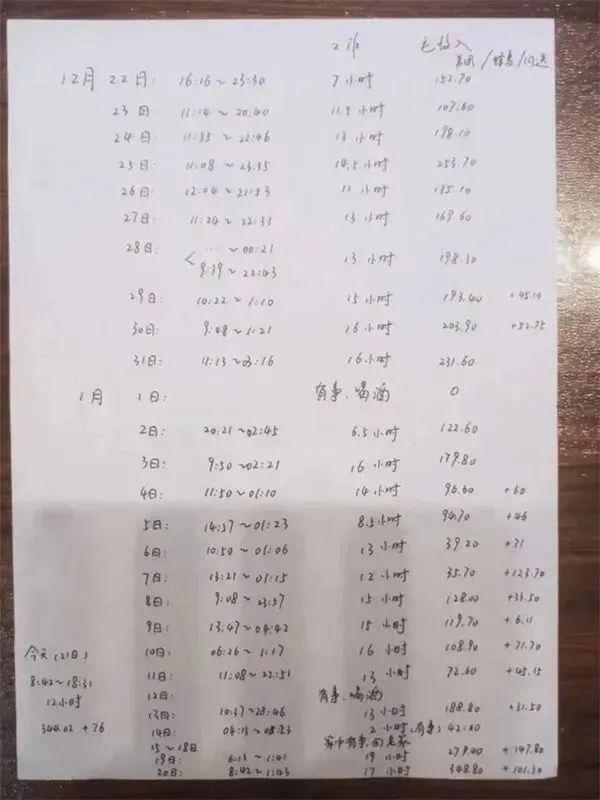 工作 毛收入
美团/蜂鸟/闪送
12月 22日: 16:16~23:30 7小时 152.70
23日: 11:14~20:40 11.5小时 107.60
24日: 11:35~22:46 13小时 198.10
25日: 11:08~23:35 14.5小时 253.70
26日: 12:04~21:53 11小时 135.10
27日: 11:24~22:31 13小时 169.60
28日: < ...~00:21
9:39~22:43 13小时 198.30
29日: 10:22~1:10 15小时 193.40 +45.10
30日: 9:48~1:21 16小时 203.90 +52.75
31日: 11:13~03:16 16小时 231.60
1月 1日: 有事、喝酒 0
2日: 20:21~02:45 6.5小时 122.60
3日: 9:50~02:21 16小时 179.80
4日: 11:50~01:10 14小时 96.60 +60
5日: 14:37~01:23 8.5小时 94.70 +46
6日: 10:50~01:06 13小时 39.20 +71
7日: 13:21~01:15 12小时 35.70 +123.70
8日: 9:08~23:57 15小时 128.00 +33.50
9日: 13:47~04:42 15小时 119.70 +6.11
10日: 06:26~1:17 16小时 108.90 +71.70
11日: 11:08~22:51 13小时 72.60 +45.15
12日: 有事、喝酒
13日: 10:37~23:46 13小时 188.80 +31.50
14日: 04:15~08:23 2小时(有事) 42.00
15~18日 家中有事,回老家
19日: 6:13~1:41 19小时 279.00 +147.80
20日: 8:42~1:43 17小时 348.80 +101.50
今天(21日)
8:42~18:31
12小时
344.02 +76